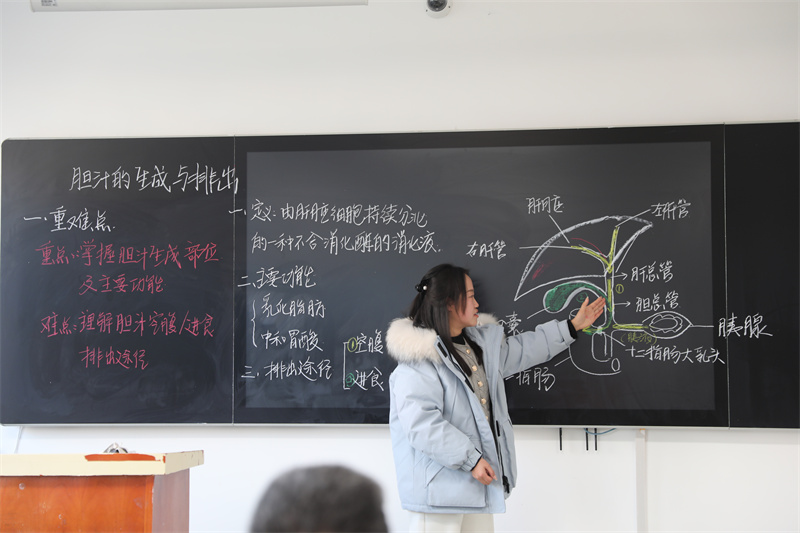 胆汁的生成与排出
一、重难点
重点:掌握胆汁生成部位
及主要功能
难点:理解胆汁空腹/进食
排出途径
一、定义:由肝脏细胞持续分泌
的一种不含消化酶的消化液.
二、主要功能
乳化脂肪
中和胃酸
三、排出途径
①空腹
②进食
肝脏
左肝管
右肝管
肝总管
①
胆总管
囊
胰腺
十二指肠大乳头
指肠